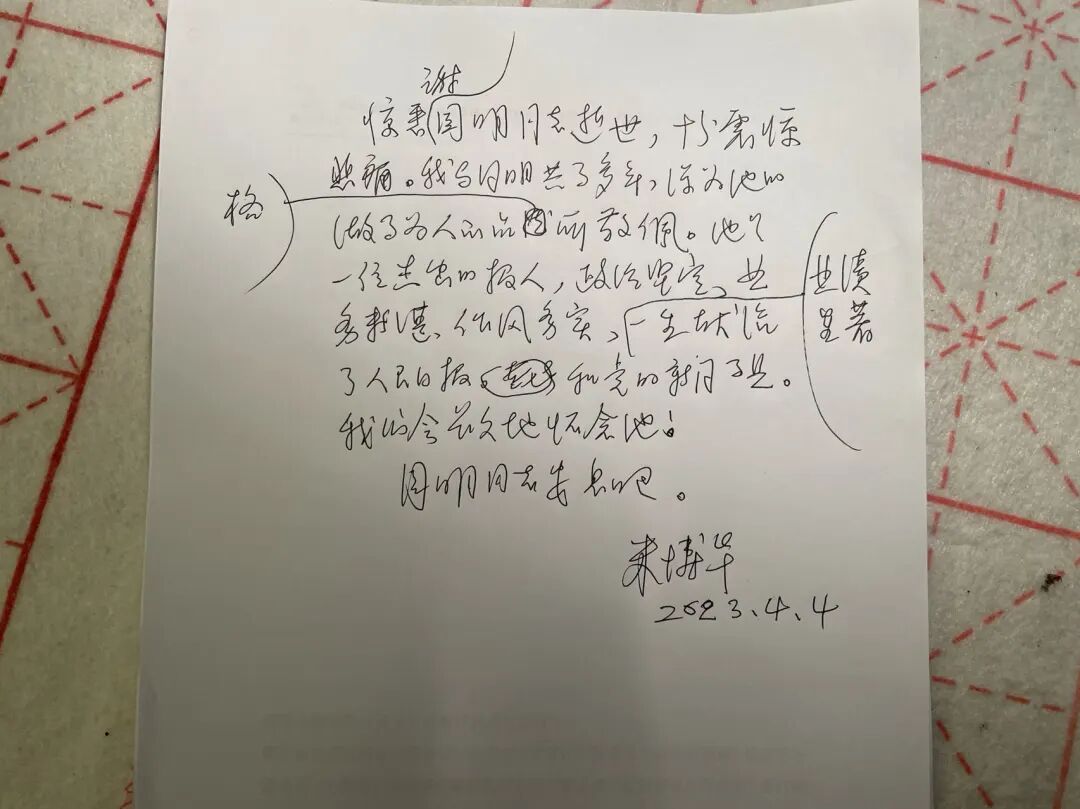 谢
惊悉国明同志逝世，十分震惊
悲痛。我与国明共事多年，深为他的
格
做事为人的品所敬佩。他是
一位杰出的报人，政治坚定、业
业绩
务精湛、作风务实，一生献给
显著
了人民日报和党的新闻事业。
我们会永久地怀念他！
国明同志安息吧。
米博华
2023.4.4